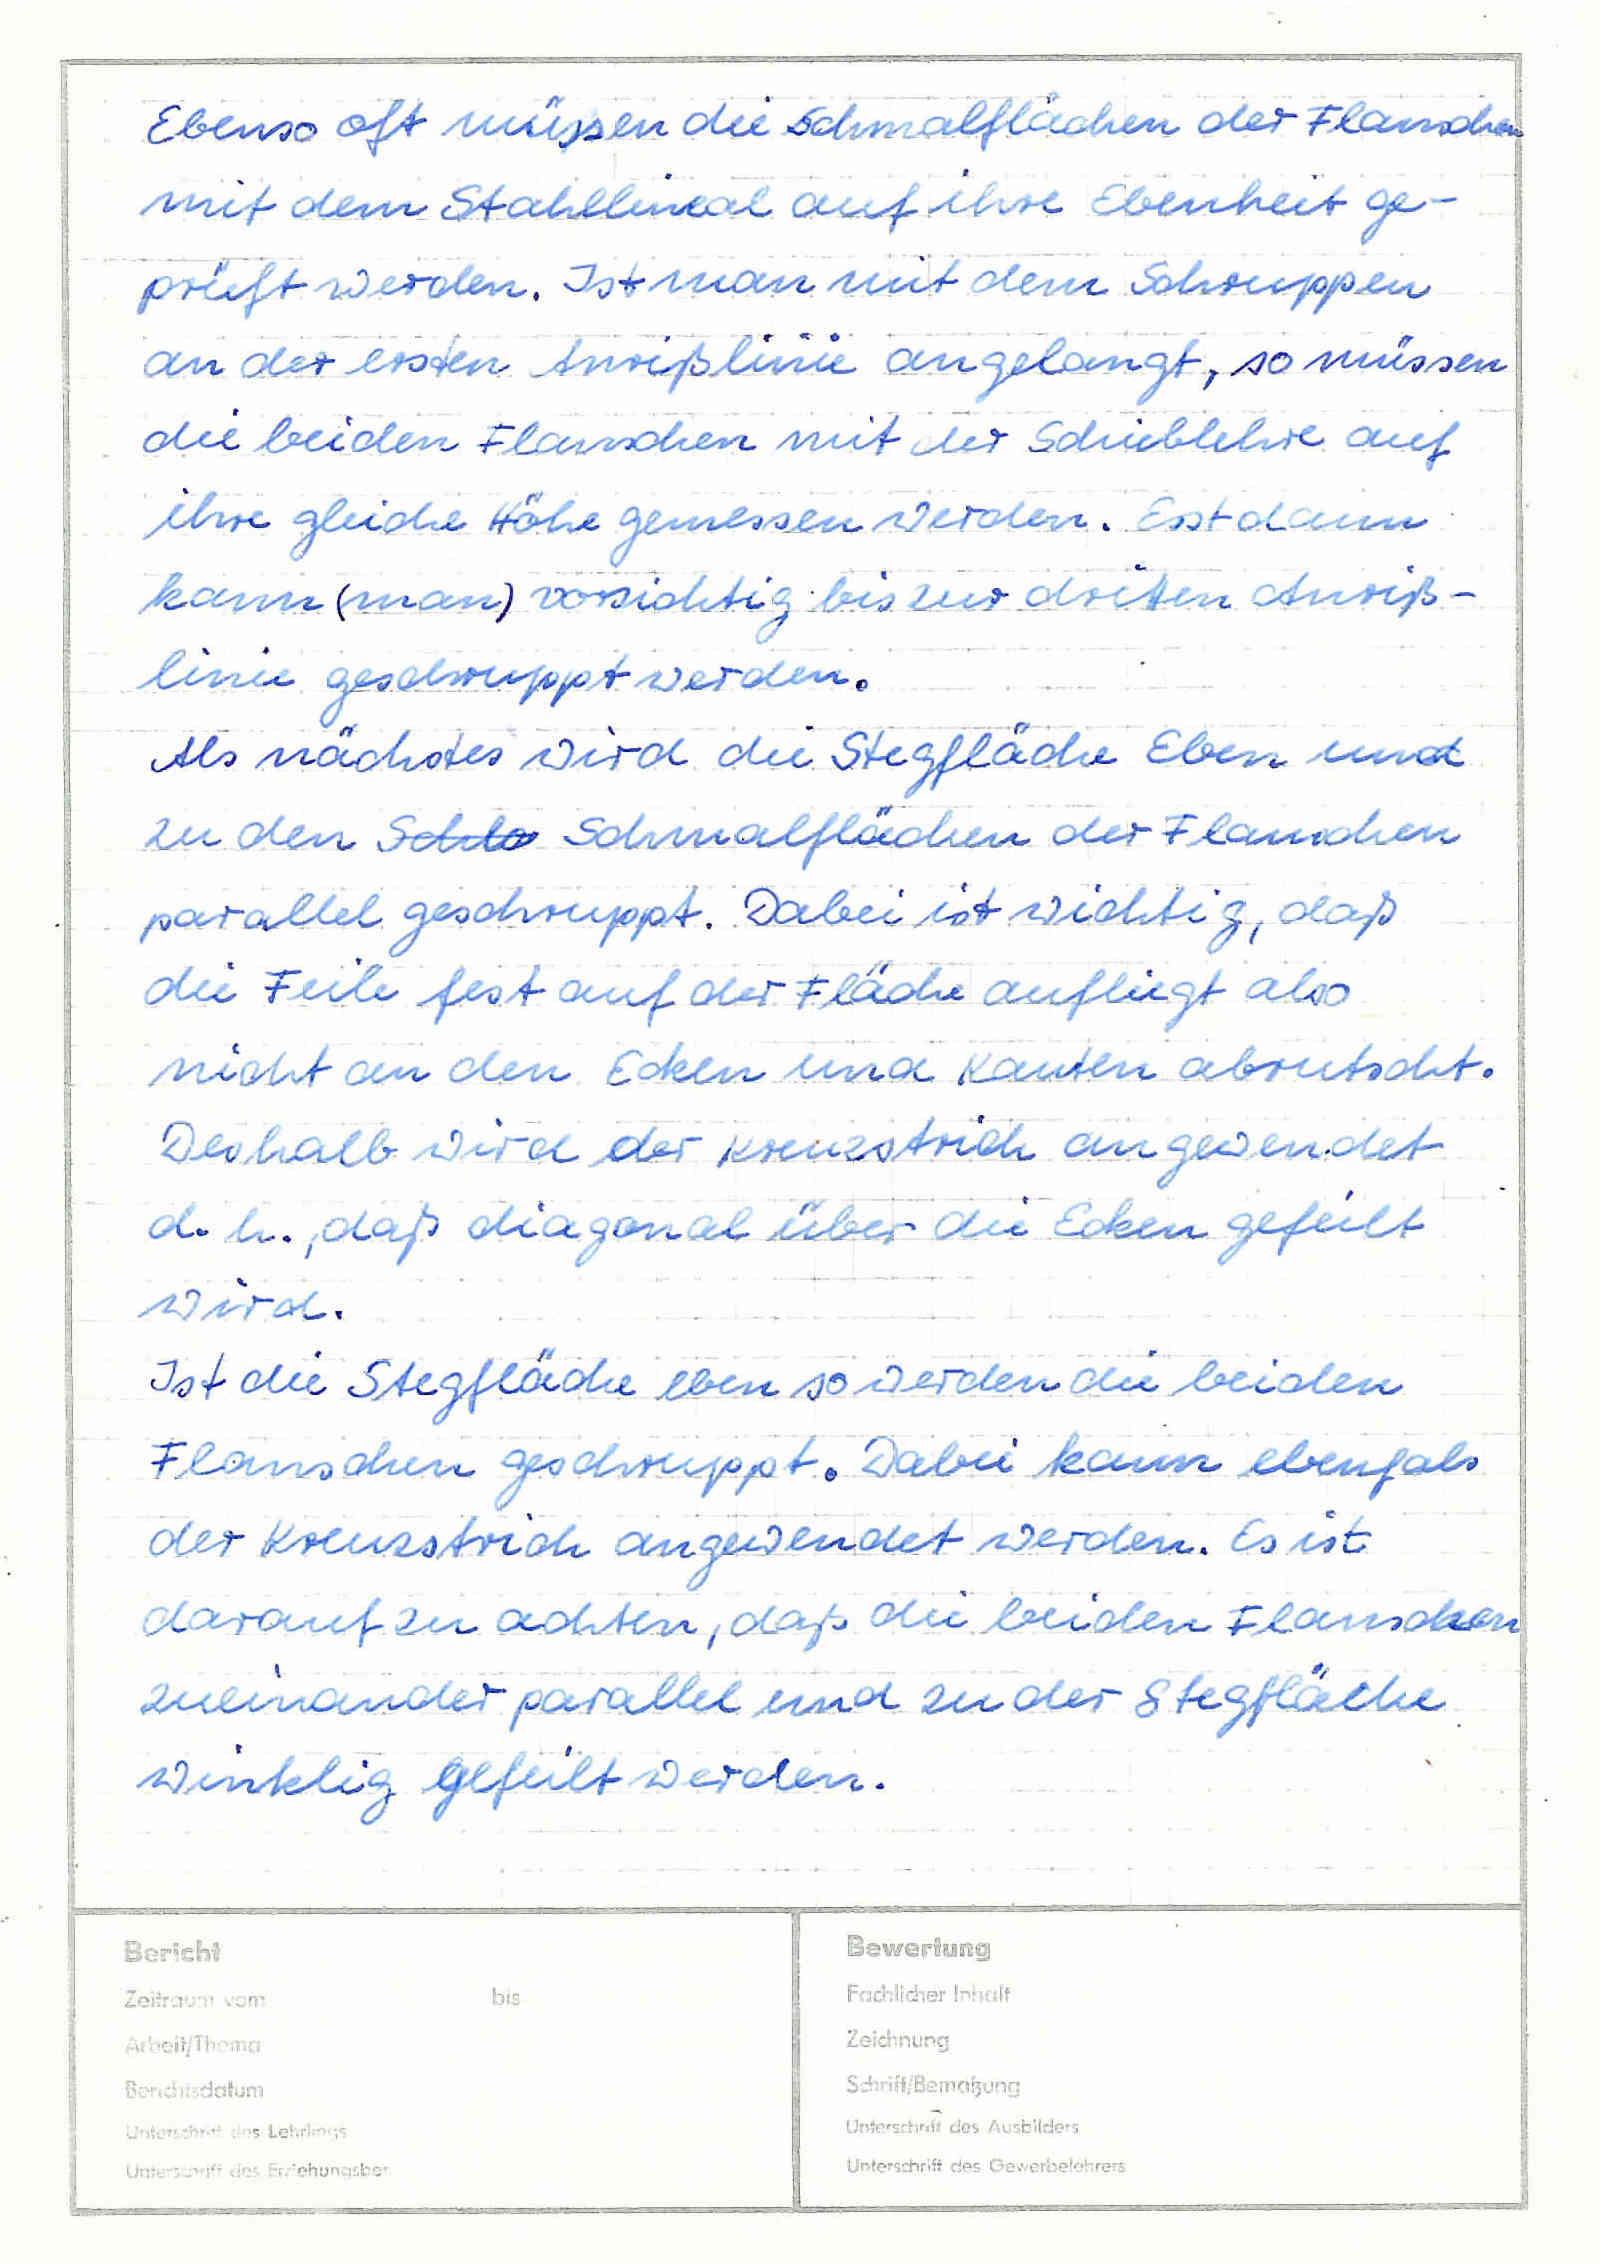 Ebenso oft müssen die Schmalflächen der Flanschen
mit dem Stahllineal auf ihre Ebenheit ge-
prüft werden. Ist man mit dem Schruppen
an der ersten Anrißlinie angelangt, so müssen
die beiden Flanschen mit der Schieblehre auf
ihre gleiche Höhe gemessen werden. Erst dann
kann (man) vorsichtig bis zur dritten Anriß-
linie geschruppt werden.
Als nächstes wird die Stegfläche Eben und
zu den Schmalflächen der Flanschen
parallel geschruppt. Dabei ist wichtig, daß
die Feile fest auf der Fläche aufliegt also
nicht an den Ecken und Kanten abrutscht.
Deshalb wird der Kreuzstrich angewendet
d. h., daß diagonal über die Ecken gefeilt
wird.
Ist die Stegfläche eben so werden die beiden
Flanschen geschruppt. Dabei kann ebenfals
der Kreuzstrich angewendet werden. Es ist
darauf zu achten, daß die beiden Flanschen
zueinander parallel und zu der Stegfläche
winklig gefeilt werden.
Bericht
Zeitraum vom bis
Arbeit/Thema
Berichtsdatum
Unterschrift des Lehrlings
Unterschrift des Erziehungsber.
Bewertung
Fachlicher Inhalt
Zeichnung
Schrift/Bemaßung
Unterschrift des Ausbilders
Unterschrift des Gewerbelehrers